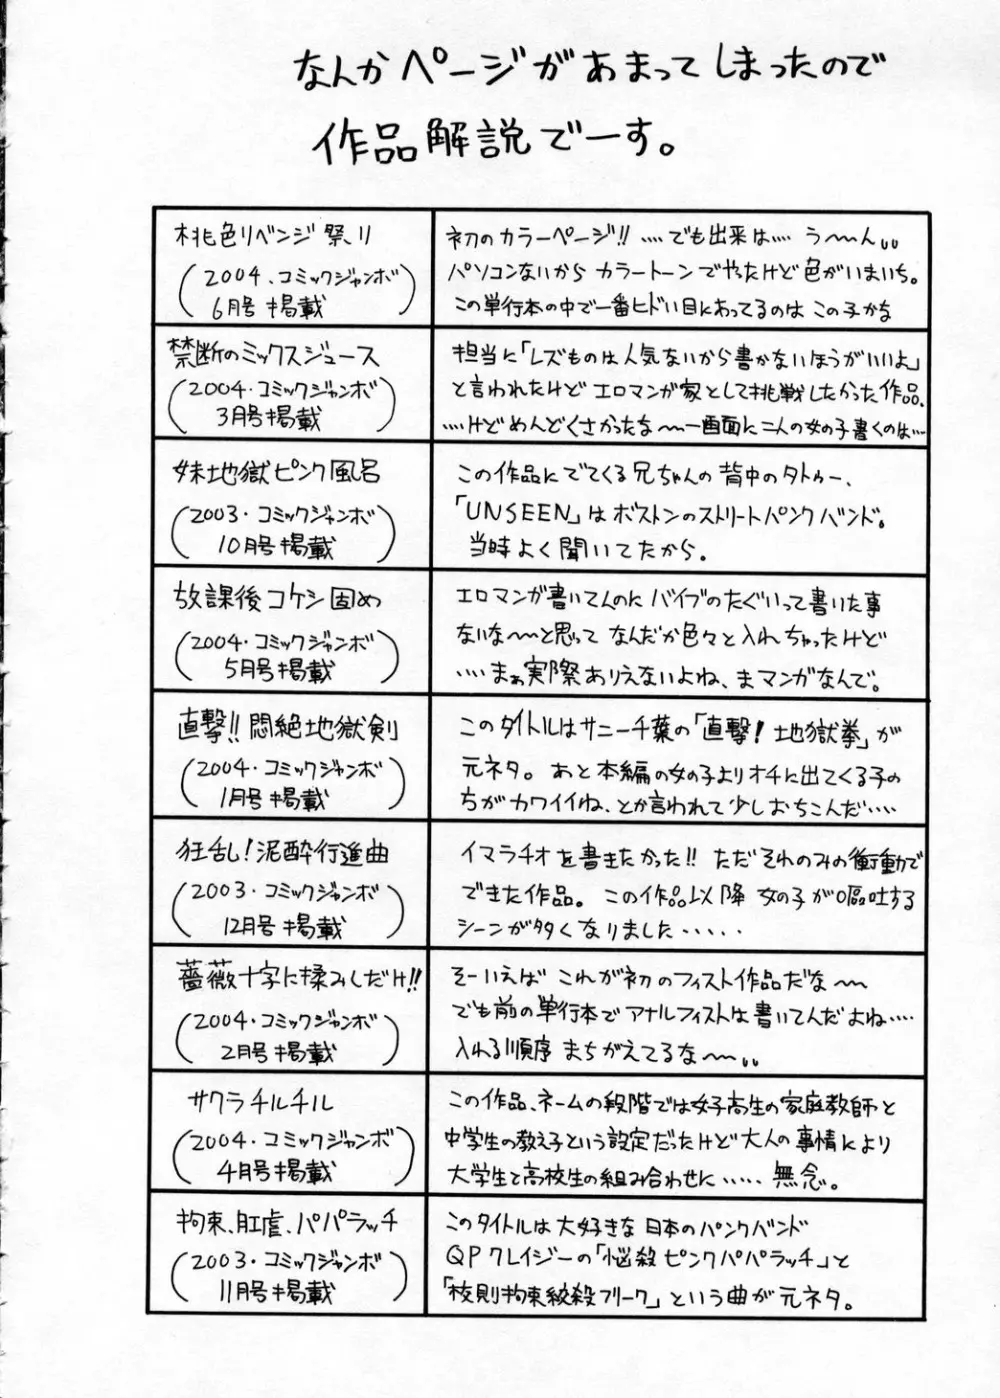 なんかページがあまってしまったので
作品解説でーす。
桃色リベンジ祭り
(2004.コミックジャンボ
6月号掲載)
初のカラーページ!! ‥‥でも出来は‥‥ う〜〜ん、、
パソコンないから カラートーンでやったけど色がいまいち。
この単行本の中で一番ヒドい目にあってるのは この子かな
禁断のミックスジュース
(2004・コミックジャンボ
3月号掲載)
担当に「レズものは人気ないから書かないほうがいいよ」
と言われたけど エロマンガ家として挑戦したかった作品、
‥‥けどめんどくさかったな〜〜一画面に二人の女の子書くのは‥‥
妹地獄ピンク風呂
(2003・コミックジャンボ
10月号掲載)
この作品にでてくる兄ちゃんの背中のタトゥー、
「UNSEEN」はボストンのストリートパンクバンド。
当時よく聞いてたから。
放課後コケシ固め
(2004・コミックジャンボ
5月号掲載)
エロマンガ書いてんのに バイブのたぐいって書いた事
ないな〜〜と思って なんだか色々と入れちゃったけど
‥‥まぁ実際ありえないよね、まマンガなんで。
直撃!! 悶絶地獄剣
(2004・コミックジャンボ
1月号掲載)
このタイトルはサニー千葉の「直撃! 地獄拳」が
元ネタ。あと本編の女の子よりオチに出てくる子の
ちがカワイイね、とか言われて少しおちこんだ‥‥‥
狂乱!泥酔行進曲
(2003・コミックジャンボ
12月号掲載)
イマラチオを書きたかった!! ただそれのみの衝動で
できた作品。この作品以降 女の子が嘔吐する
シーンが多くなりました‥‥‥
薔薇十字に揉みしだけ!!
(2004・コミックジャンボ
2月号掲載)
そーいえば これが初のフィスト作品だな〜〜
でも前の単行本で アナルフィストは書いてんだよね‥‥
入れる順序 まちがえてるな〜〜、、
サクラチルチル
(2004・コミックジャンボ
4月号掲載)
この作品、ネームの段階では女子高生の家庭教師と
中学生の教え子という設定だったけど大人の事情により
大学生と高校生の組み合わせに‥‥‥ 無念。
拘束、肛虐、パパラッチ
(2003・コミックジャンボ
11月号掲載)
このタイトルは大好きな日本のパンクバンド
QPクレイジーの「悩殺ピンクパパラッチ」と
「校則拘束絞殺フリーク」という曲が元ネタ。